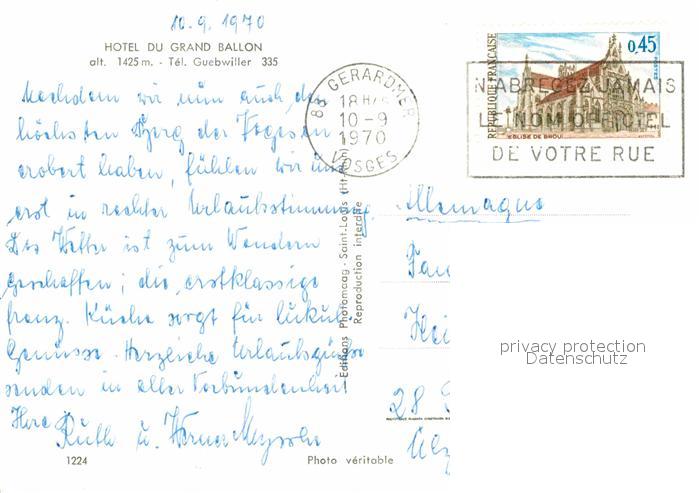 10.9.1970
HOTEL DU GRAND BALLON
alt. 1425 m. - Tél. Guebwiller 335
Nachdem wir nun auch den
höchsten Berg der Vogesen
erobert haben, fühlen wir uns
erst in rechter Urlaubsstimmung.
Das Wetter ist zum Wandern
geschaffen; die erstklassige
franz. Küche sorgt für lukul.
Genüsse. Herzliche Urlaubsgrüsse
senden in alter Verbundenheit
Ruth u. Werner
1224
Photo véritable
Editions Photomag - Saint-Louis (Ht-Rhin)
Reproduction interdite
88 GERARDMER
18H
10-9
1970
VOSGES
REPUBLIQUE FRANÇAISE
0,45
POSTES
EGLISE DE BROU
N'ABREGEZ JAMAIS
LE NOM OFFICIEL
DE VOTRE RUE
Allemagne
Fau
Hei
28
privacy protection
Datenschutz